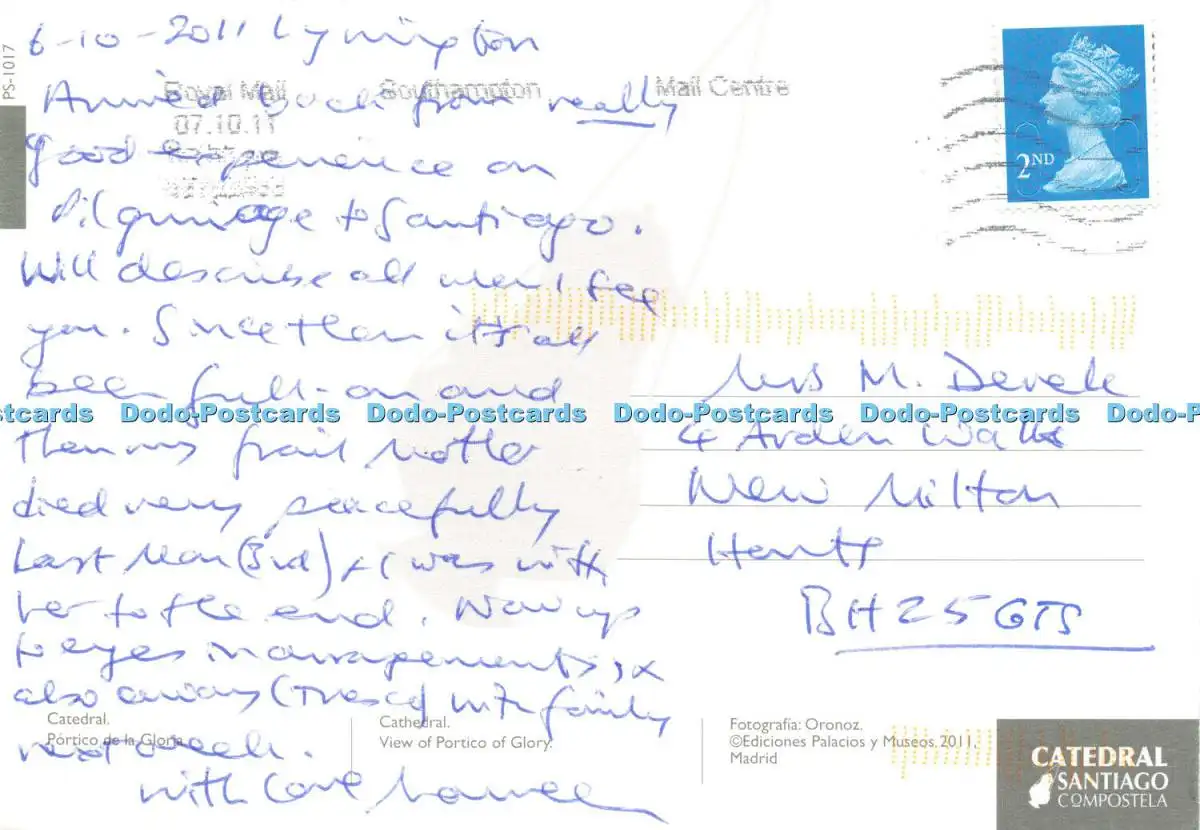 6-10-2011 Lymington
Arrived back from really
good experience on
Pilgrimage to Santiago.
Will describe all when I see
you. Since then it's all
been full-on and
then my frail mother
died very peacefully
last Mon (3rd) & I was with
her to the end. Now up
to eyes in arrangements, &
also away (Tresco) with family
next week.
with love
PS-1017
Royal Mail Southampton Mail Centre
07.10.11
2ND
Mrs M.
4 Arden Walk
New Milton
Hants
BH25
Dodo-Postcards Dodo-Postcards Dodo-Postcards Dodo-Postcards
Catedral.
Pórtico de la Gloria
Cathedral.
View of Portico of Glory.
Fotografía: Oronoz.
©Ediciones Palacios y Museos, 2011,
Madrid
CATEDRAL
SANTIAGO
COMPOSTELA